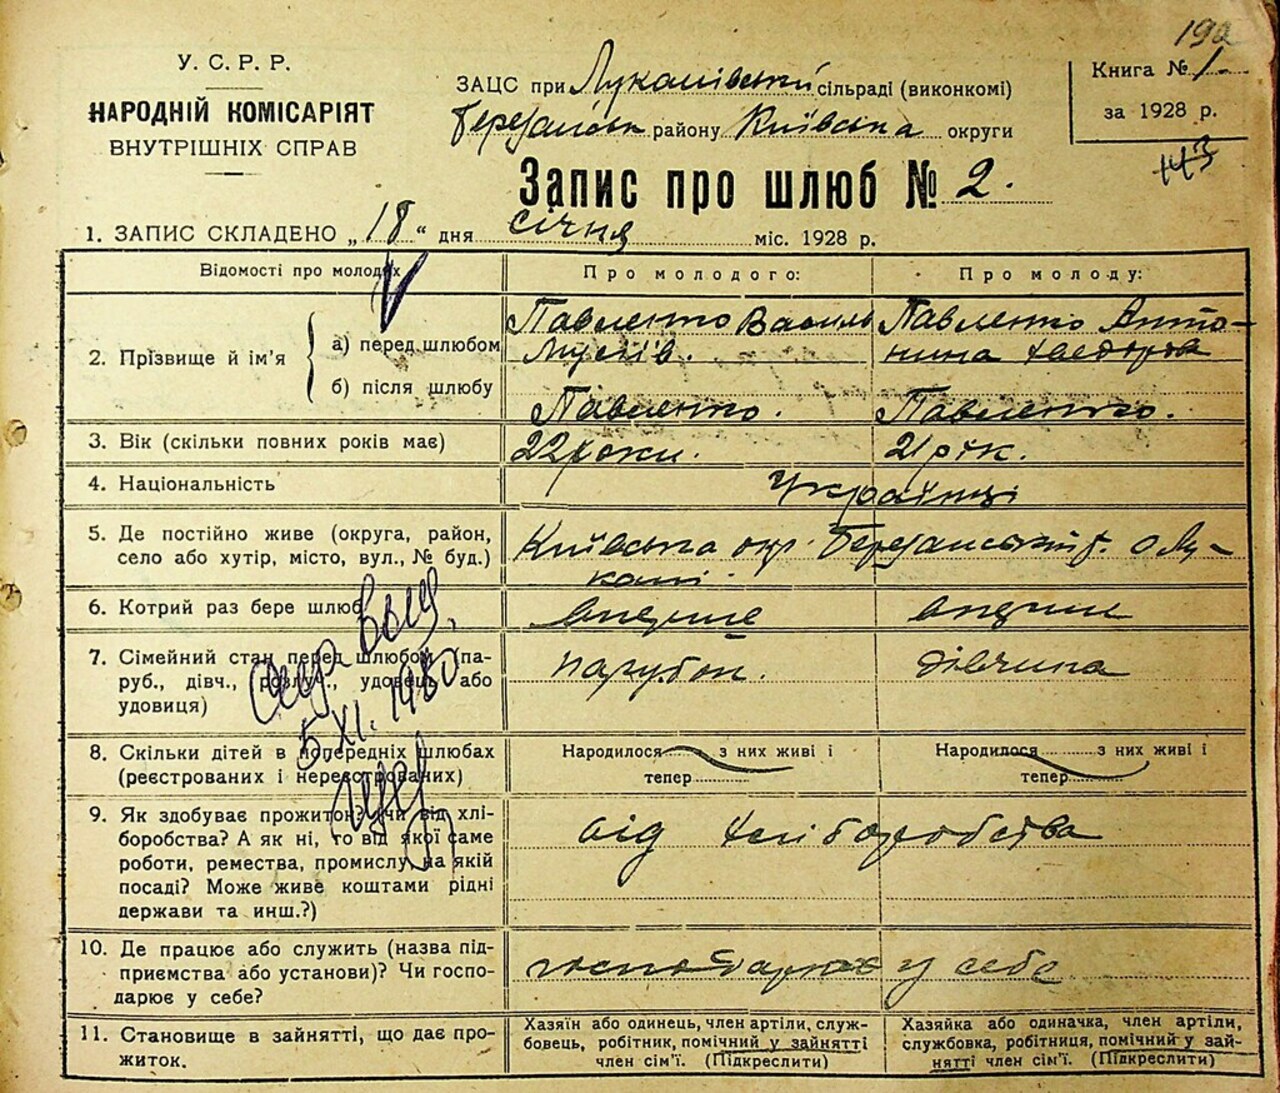 192
У. С. Р. Р.
НАРОДНІЙ КОМІСАРІЯТ
ВНУТРІШНІХ СПРАВ
ЗАЦС при Лукашівській сільраді (виконкомі)
Березанськ району Київська округи
Книга № 1
за 1928 р.
143
Запис про шлюб № 2.
1. ЗАПИС СКЛАДЕНО „18“ дня січня міс. 1928 р.
Відомості про молодих
Про молодого:
Про молоду:
2. Прізвище й ім'я
а) перед шлюбом
Павленко Василь
Мусіїв.
Павленко Анто-
нина Хведорів
б) після шлюбу
Павленко.
Павленко.
3. Вік (скільки повних років має)
22 роки.
21 рік.
4. Національність
Українці
5. Де постійно живе (округа, район,
село або хутір, місто, вул., № буд.)
Київська окр. Березанський р. с Лу-
каші.
6. Котрий раз бере шлюб
вперше
вперше
7. Сімейний стан перед шлюбом (па-
руб., дівч., розлуч., удовець або
удовиця)
парубок.
дівчина
5.XI. 1980
8. Скільки дітей в попередніх шлюбах
(реєстрованих і нереєстрованих)
Народилося з них живі і
тепер
Народилося з них живі і
тепер
9. Як здобуває прожиток? чи від хлі-
боробства? А як ні, то від якої саме
роботи, ремества, промислу, на якій
посаді? Може живе коштами рідні
держави та инш.?)
від хліборобства
10. Де працює або служить (назва під-
приємства або установи)? Чи госпо-
дарює у себе?
у себе
11. Становище в зайнятті, що дає про-
житок.
Хазяїн або одинець, член артіли, служ-
бовець, робітник, помічний у зайнятті
член сім'ї. (Підкреслити)
Хазяйка або одиначка, член артіли,
службовка, робітниця, помічний у зай-
нятті член сім'ї. (Підкреслити)